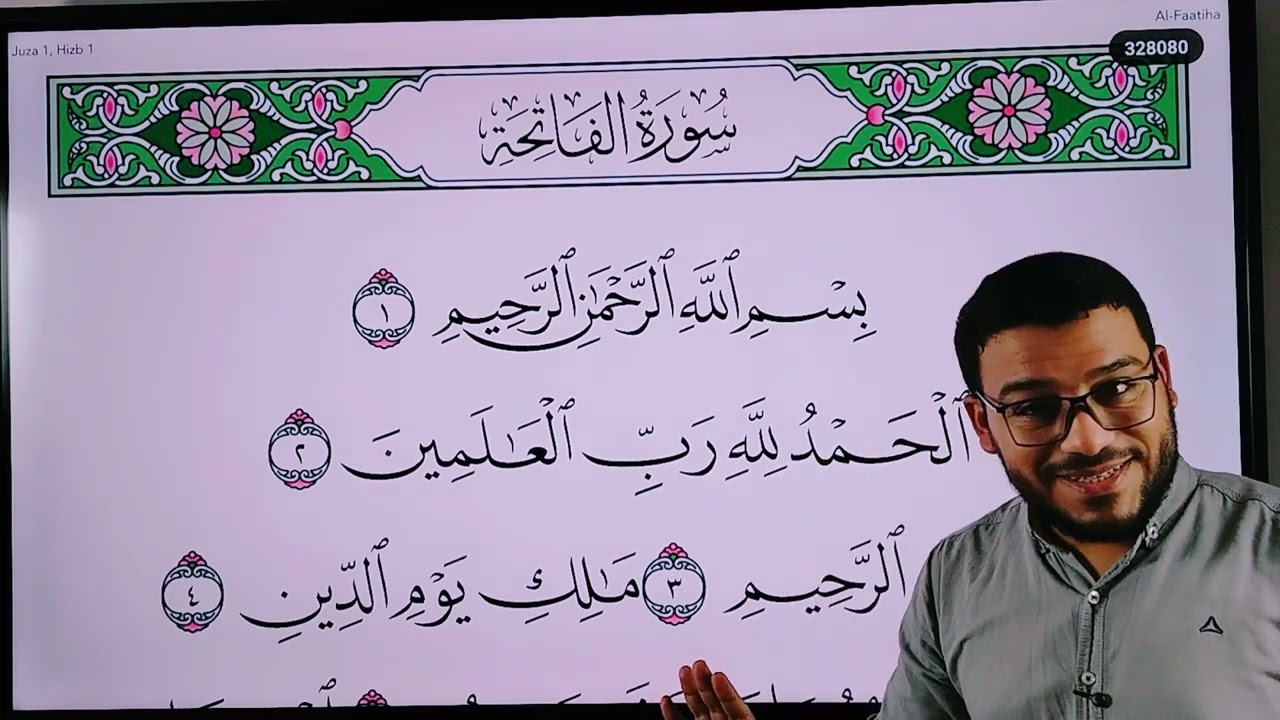 Al-Faatiha
Juza 1, Hizb 1
328080
سُورَةُ الفَاتِحَةِ
بِسْمِ ٱللَّهِ ٱلرَّحْمَٰنِ ٱلرَّحِيمِ ١
ٱلْحَمْدُ لِلَّهِ رَبِّ ٱلْعَٰلَمِينَ ٢
ٱلرَّحِيمِ ٣ مَٰلِكِ يَوْمِ ٱلدِّينِ ٤